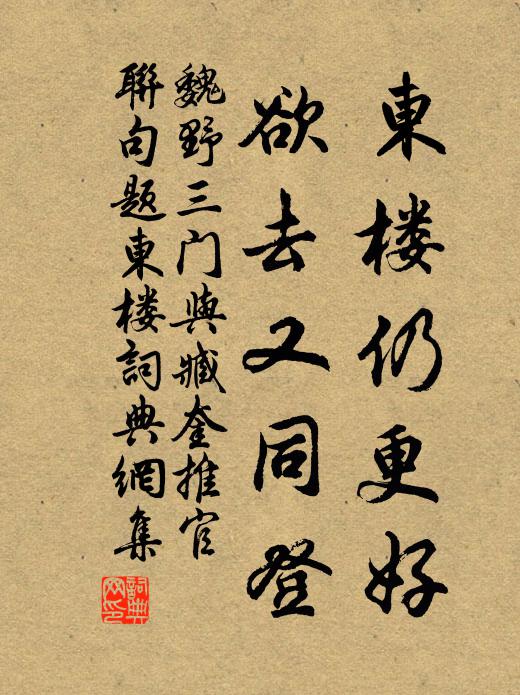 東楼仍更好
欲去又同登
魏野三门與臧奎推官
聯句题東楼詞典網集
詞典網印